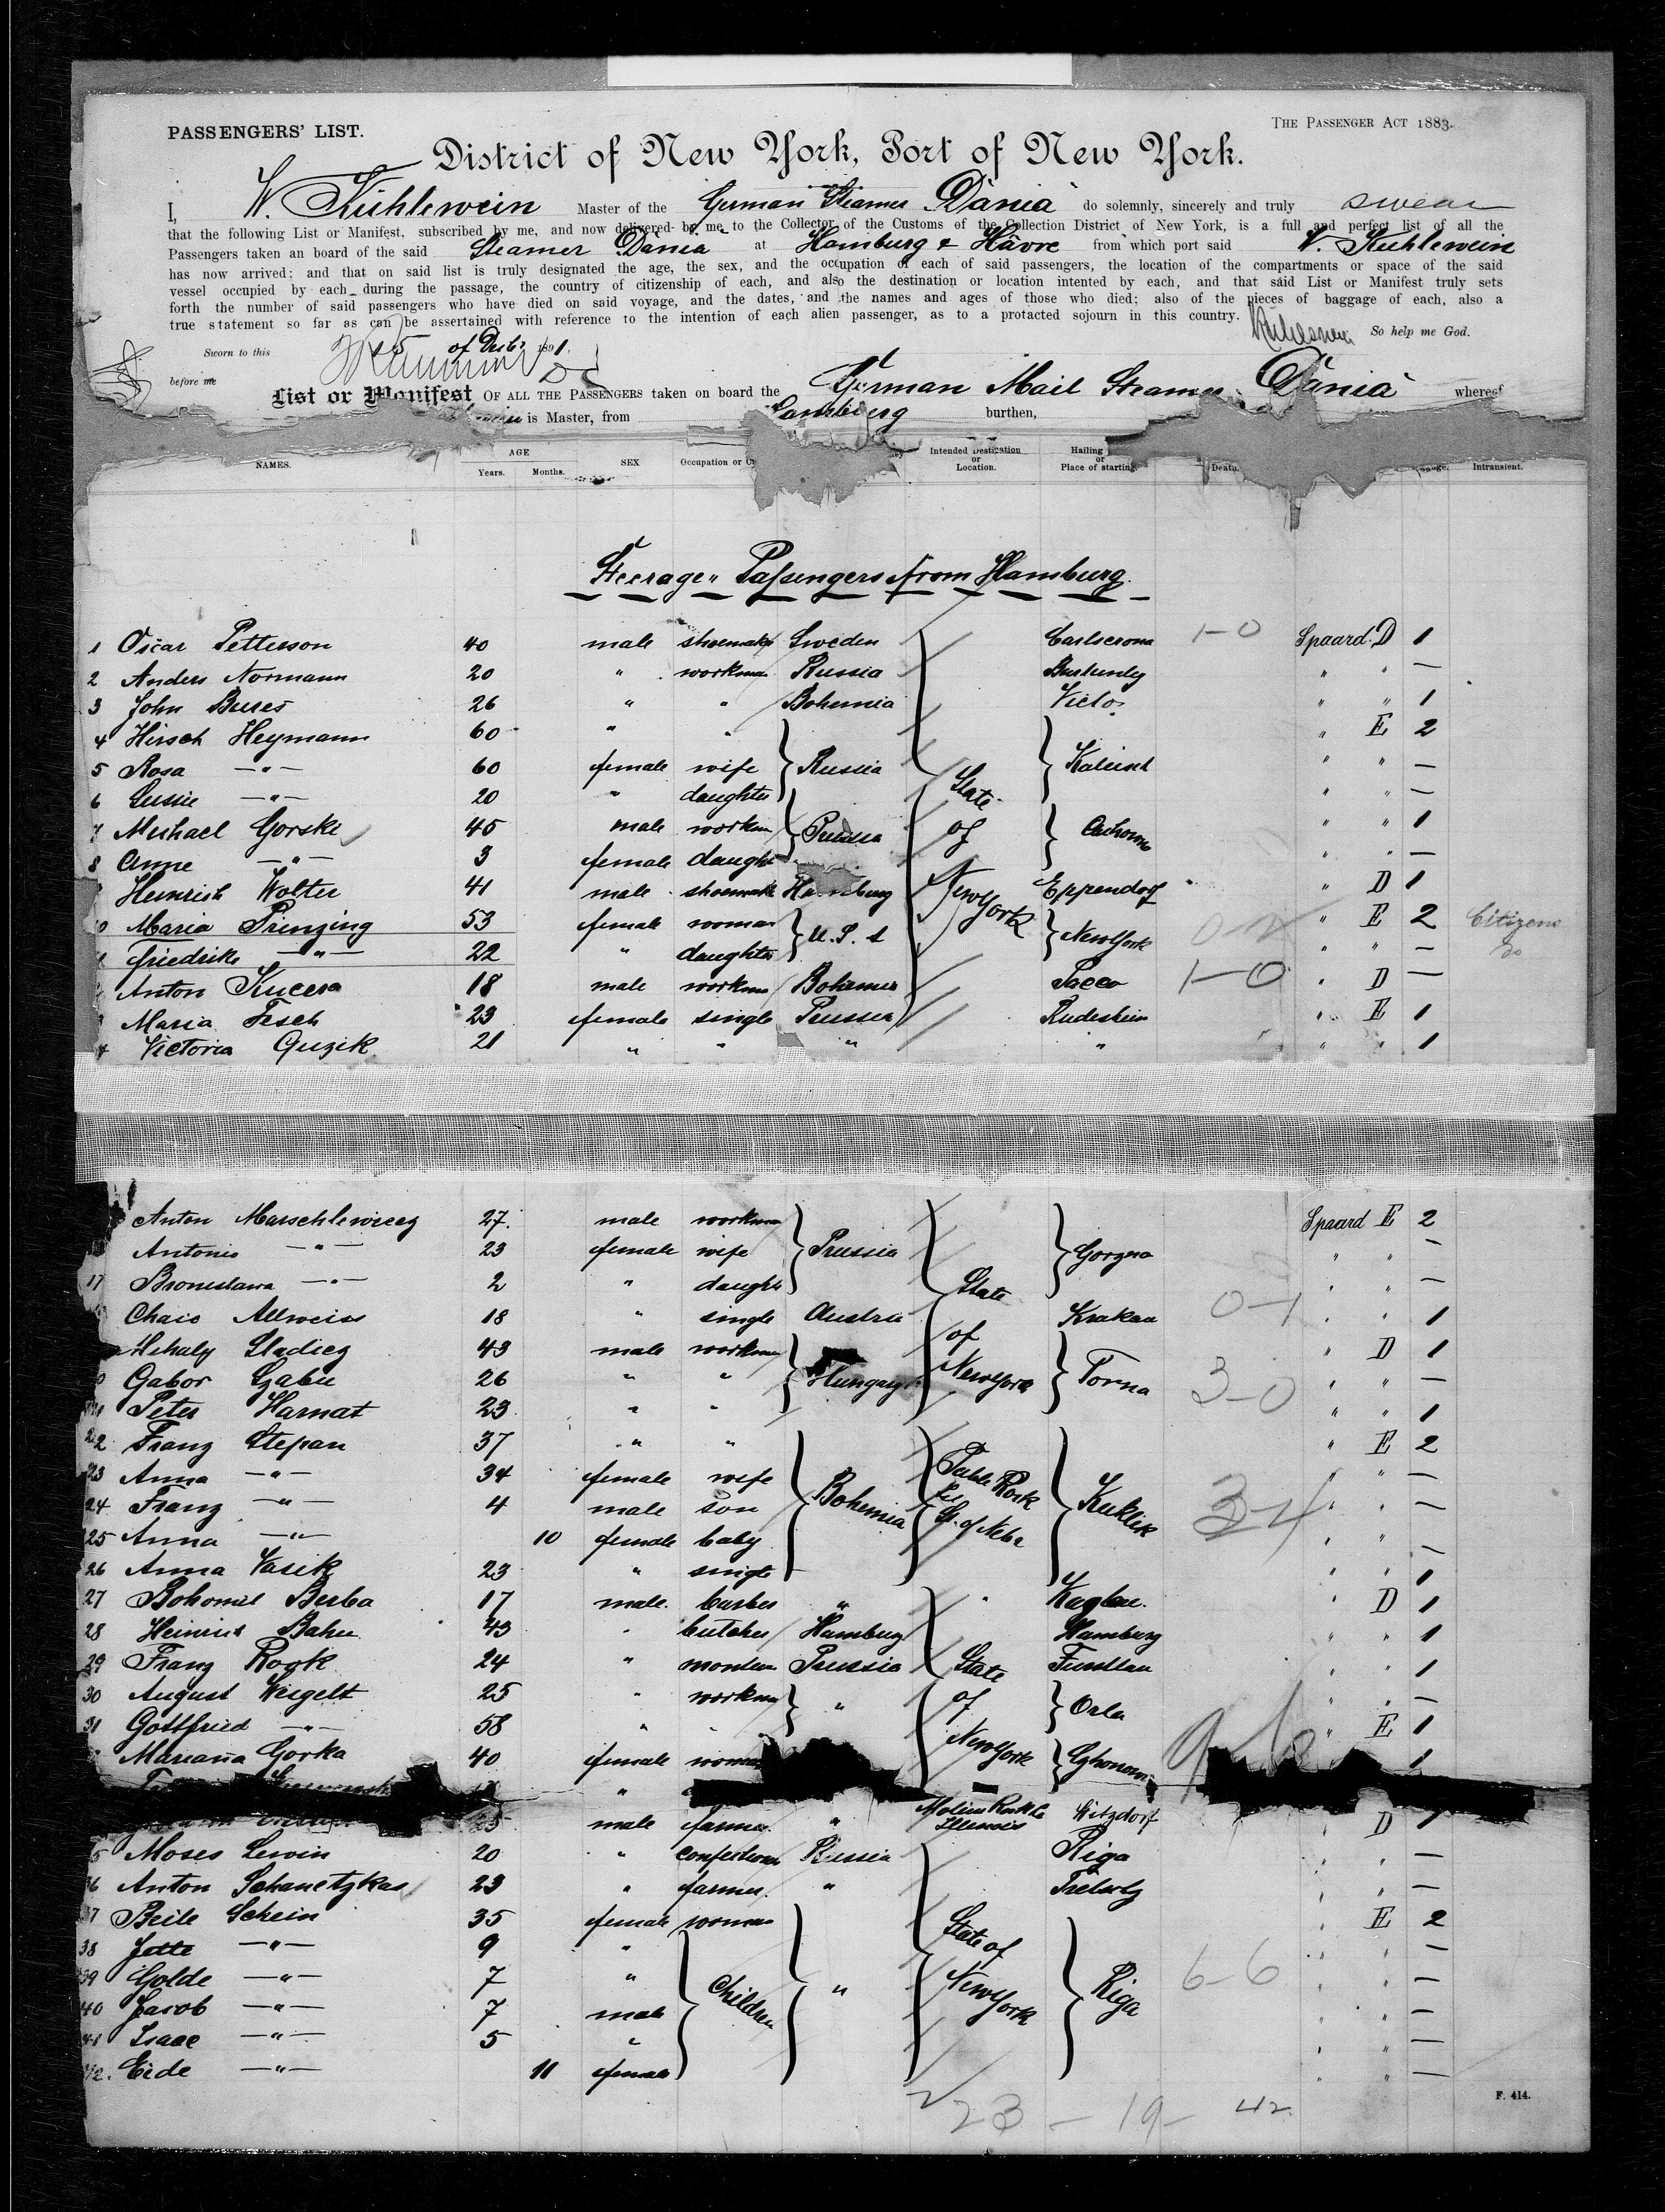 PASSENGERS' LIST.
THE PASSENGER ACT 1883.
District of New York, Port of New York.
I, W. Kühlewein Master of the German Steamer "Dania" do solemnly, sincerely and truly swear
that the following List or Manifest, subscribed by me, and now delivered by me to the Collector of the Customs of the Collection District of New York, is a full and perfect list of all the
Passengers taken an board of the said Steamer Dania at Hamburg & Hâvre from which port said W. Kühlewein
has now arrived; and that on said list is truly designated the age, the sex, and the occupation of each of said passengers, the location of the compartments or space of the said
vessel occupied by each during the passage, the country of citizenship of each, and also the destination or location intented by each, and that said List or Manifest truly sets
forth the number of said passengers who have died on said voyage, and the dates, and the names and ages of those who died; also of the pieces of baggage of each, also a
true statement so far as can be assertained with reference to the intention of each alien passenger, as to a protacted sojourn in this country.
So help me God.
Sworn to this 25 of Decbr 1891.
before me
List or Manifest OF ALL THE PASSENGERS taken on board the German Mail Steamer "Dania" whereof
is Master, from Hamburg burthen,
NAMES. AGE Years. Months. SEX Occupation or Intended Destination or Location. Hailing or Place of starting. Death. Intransient.
Steerage Passengers from Hamburg.
1 Oscar Petterson 40 male shoemaker Sweden Carlscrona 1-0 Spaard. D 1
2 Anders Normann 20 " workman Russia " " —
3 John Bures 26 " " Bohemia " " 1
4 Hirsch Heymann 60 " " " E 2
5 Rosa —"— 60 female wife Russia Kalisch " " —
6 Lussie —"— 20 " daughter State " " —
7 Michael Gorske 45 male workm Prussia of " " 1
8 Anne —"— 3 female daught " " —
Heinrich Wolter 41 male shoemake Hamburg New York Eppendorf " D 1
Maria Prinzing 53 female woman U. S. A New York 0-2 " E 2 Citizens
Friedrike —"— 22 " daughter " " — do
Anton Kucera 18 male workm Bohemia 1-0 " D —
Maria Fesch 23 female single Prussia Rudesheim " E 1
Victoria Guzik 21 " " " " " " 1
Anton Marschlewicz 27 male workman Spaard E 2
Antonie —"— 23 female wife Prussia Gorzno " " —
17 Bronislawa —"— 2 " daught State " " —
Chaie Allweiss 18 " single Austria Krakau 0-1 " " 1
Mihaly Sladicz 43 male workman of " D 1
Gabor 26 " " Hungary New York Torna 3-0 " " —
Peter Harnat 23 " " " " 1
22 Franz Stepan 37 " " " E 2
23 Anna —"— 34 female wife Table Rock " " —
24 Franz —"— 4 male son Bohemia St. of Nebr Kuklik 3-4 " " —
25 Anna —"— 10 female baby " " —
26 Anna Vasik 23 " single " " 1
27 Bohomil Berba 17 male barber " " D 1
28 Heinrich Bahn 43 " butcher Hamburg Hamburg " " 1
29 Franz Rogk 24 " Prussia State " " 1
30 August Weigelt 25 " workman " of Orla " " —
31 Gottfried —"— 58 " " " E 1
Mariana Gorka 40 female woman New York 1
male farmer " Moline Rock Illinois Witzdorf " D 1
Moses Lewin 20 " Russia Riga " " —
36 Anton Schanetzkas 23 " farmer " " " —
37 Beile Schein 35 female woman " E 2
38 Jette —"— 9 " State of " " —
39 Golde —"— 7 " Children " New York Riga 6-6 " " —
40 Jacob —"— 7 male " " —
41 Isaac —"— 5 " " " —
42. Eide —"— 11 female " " —
23 - 19 - 42
F. 414.